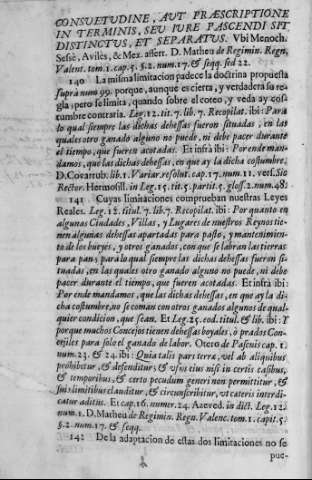 CONSUETUDINE, AUT PRÆSCRIPTIONE
IN TERMINIS, SEU IURE PASCENDI SIT
DISTINCTUS, ET SEPARATUS. Vbi Menoch.
Sesè, Avilès, & Mex. asserr. D. Matheu de Regimin. Regn.
Valent. tom. 1. cap. 5. §. 2. num. 17. & seqq. sed 22.
140 La misma limitacion padece la doctrina propuesta
supra num 99. porque, aunque es cierta, y verdadera su re-
gla, pero se limita, quando sobre el coteo, y veda ay cos-
tumbre contraria. Leg. 12. tit. 7. lib. 7. Recopilat. ibi: Para
lo qual siempre las dichas dehessas fueron situadas, en las
quales otro ganado alguno no puede, ni debe pacer durante
el tiempo, que fueren acotadas. Et infrà ibi: Por ende man-
damos, que las dichas dehessas, en que ay la dicha costumbre;
D. Covarrub. lib. 1. Variar. resolut. cap. 17. num. 11. vers. Sic
Rector. Hermosill. in Leg. 15. tit. 5. partit. 5. gloss. 2. num. 48:
141 Cuyas limitaciones comprueban nuestras Leyes
Reales. Leg. 12. titul. 7. lib. 7. Recopilat. ibi: Por quanto en
algunas Ciudades, Villas, y Lugares de nuestros Reynos tie-
nen algunas dehessas apartadas para pasto, y mantenimien-
to de los bueyes, y otros ganados, con que se labran las tierras
para pan; para lo qual siempre las dichas dehessas fueron si-
tuadas, en las quales otro ganado alguno no puede, ni debe
pacer durante el tiempo, que fueren acotadas. Et infrà ibi:
Por ende mandamos, que las dichas dehessas, en que ay la di-
cha costumbre, no se coman con otros ganados algunos de qual-
quier condicion, que sean. Et Leg. 25. eod. titul. & lib. ibi: Y
porque muchos Concejos tienen dehessas boyales, ò prados Con-
cejiles para solo el ganado de labor. Otero de Pascuis cap. 1.
num. 23. & 24. ibi: Quia talis pars terræ, vel ab aliquibus
prohibitur, & defenditur; & usus eius nisi in certis casibus,
& temporibus, & certo pecudum generi non permittitur, &
suis limitibus clauditur, & circunscribitur, ut cateris interdi-
catur aditus. Et cap. 16. numer. 24. Azeved. in dict. Leg. 12.
num. 1. D. Matheu de Regimin. Regn. Valenc. tom. 1. capit. 5.
§. 2. num. 17. & seqq.
142 De la adaptacion de estas dos limitaciones no se
pue-